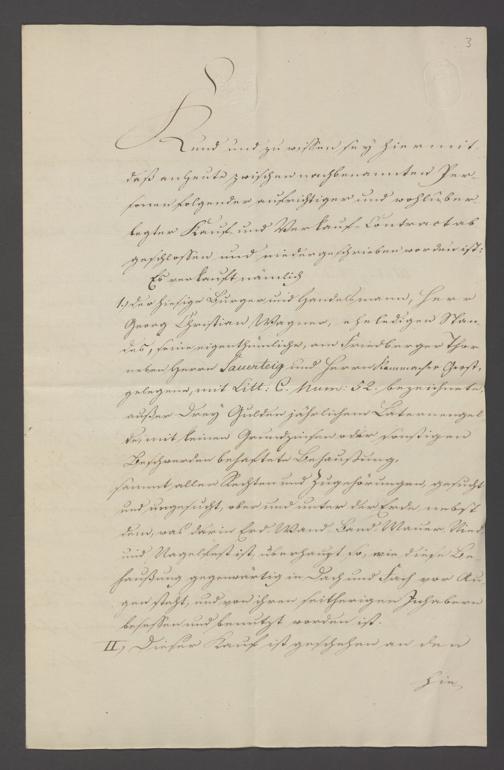 3
Kund und zu wissen sey hiermit
daß anheute zwischen nachbenannten Per-
sonen folgender aufrichtiger und wohlüber-
legter Kauf und Verkauf-Contract ab-
geschlossen und niedergeschrieben worden ist:
Es verkauft nämlich
1.) der hiesige Burger und Handelsmann, Herr
Georg Christian Wagner, ehe ledigen Stan-
des, seine eigenthümliche, am Friedberger Thor
neben Herrn Sauerteig und Herrn Kammacher
gelegene, mit Litt: C. Num: 52. bezeichnete,
außer Drey Gulden jährlichem Laternengel-
de, mit keinen Grundzinsen oder sonstigen
Beschwerden behaftete Behaußung,
sammt allen Rechten und Zugehörungen, gesucht
und ungesucht, ober und unter der Erde nebst
dem, was darin Erd Wand Band Mauer Nied
und Nagelfest ist, überhaupt so, wie diese Be-
haußung gegenwärtig in Dach und Fach vor Au-
gen steht, und von ihren seitherigen Inhabern
besessen und benutzt worden ist.
II.) Dieser Kauf ist geschehen an den
hie